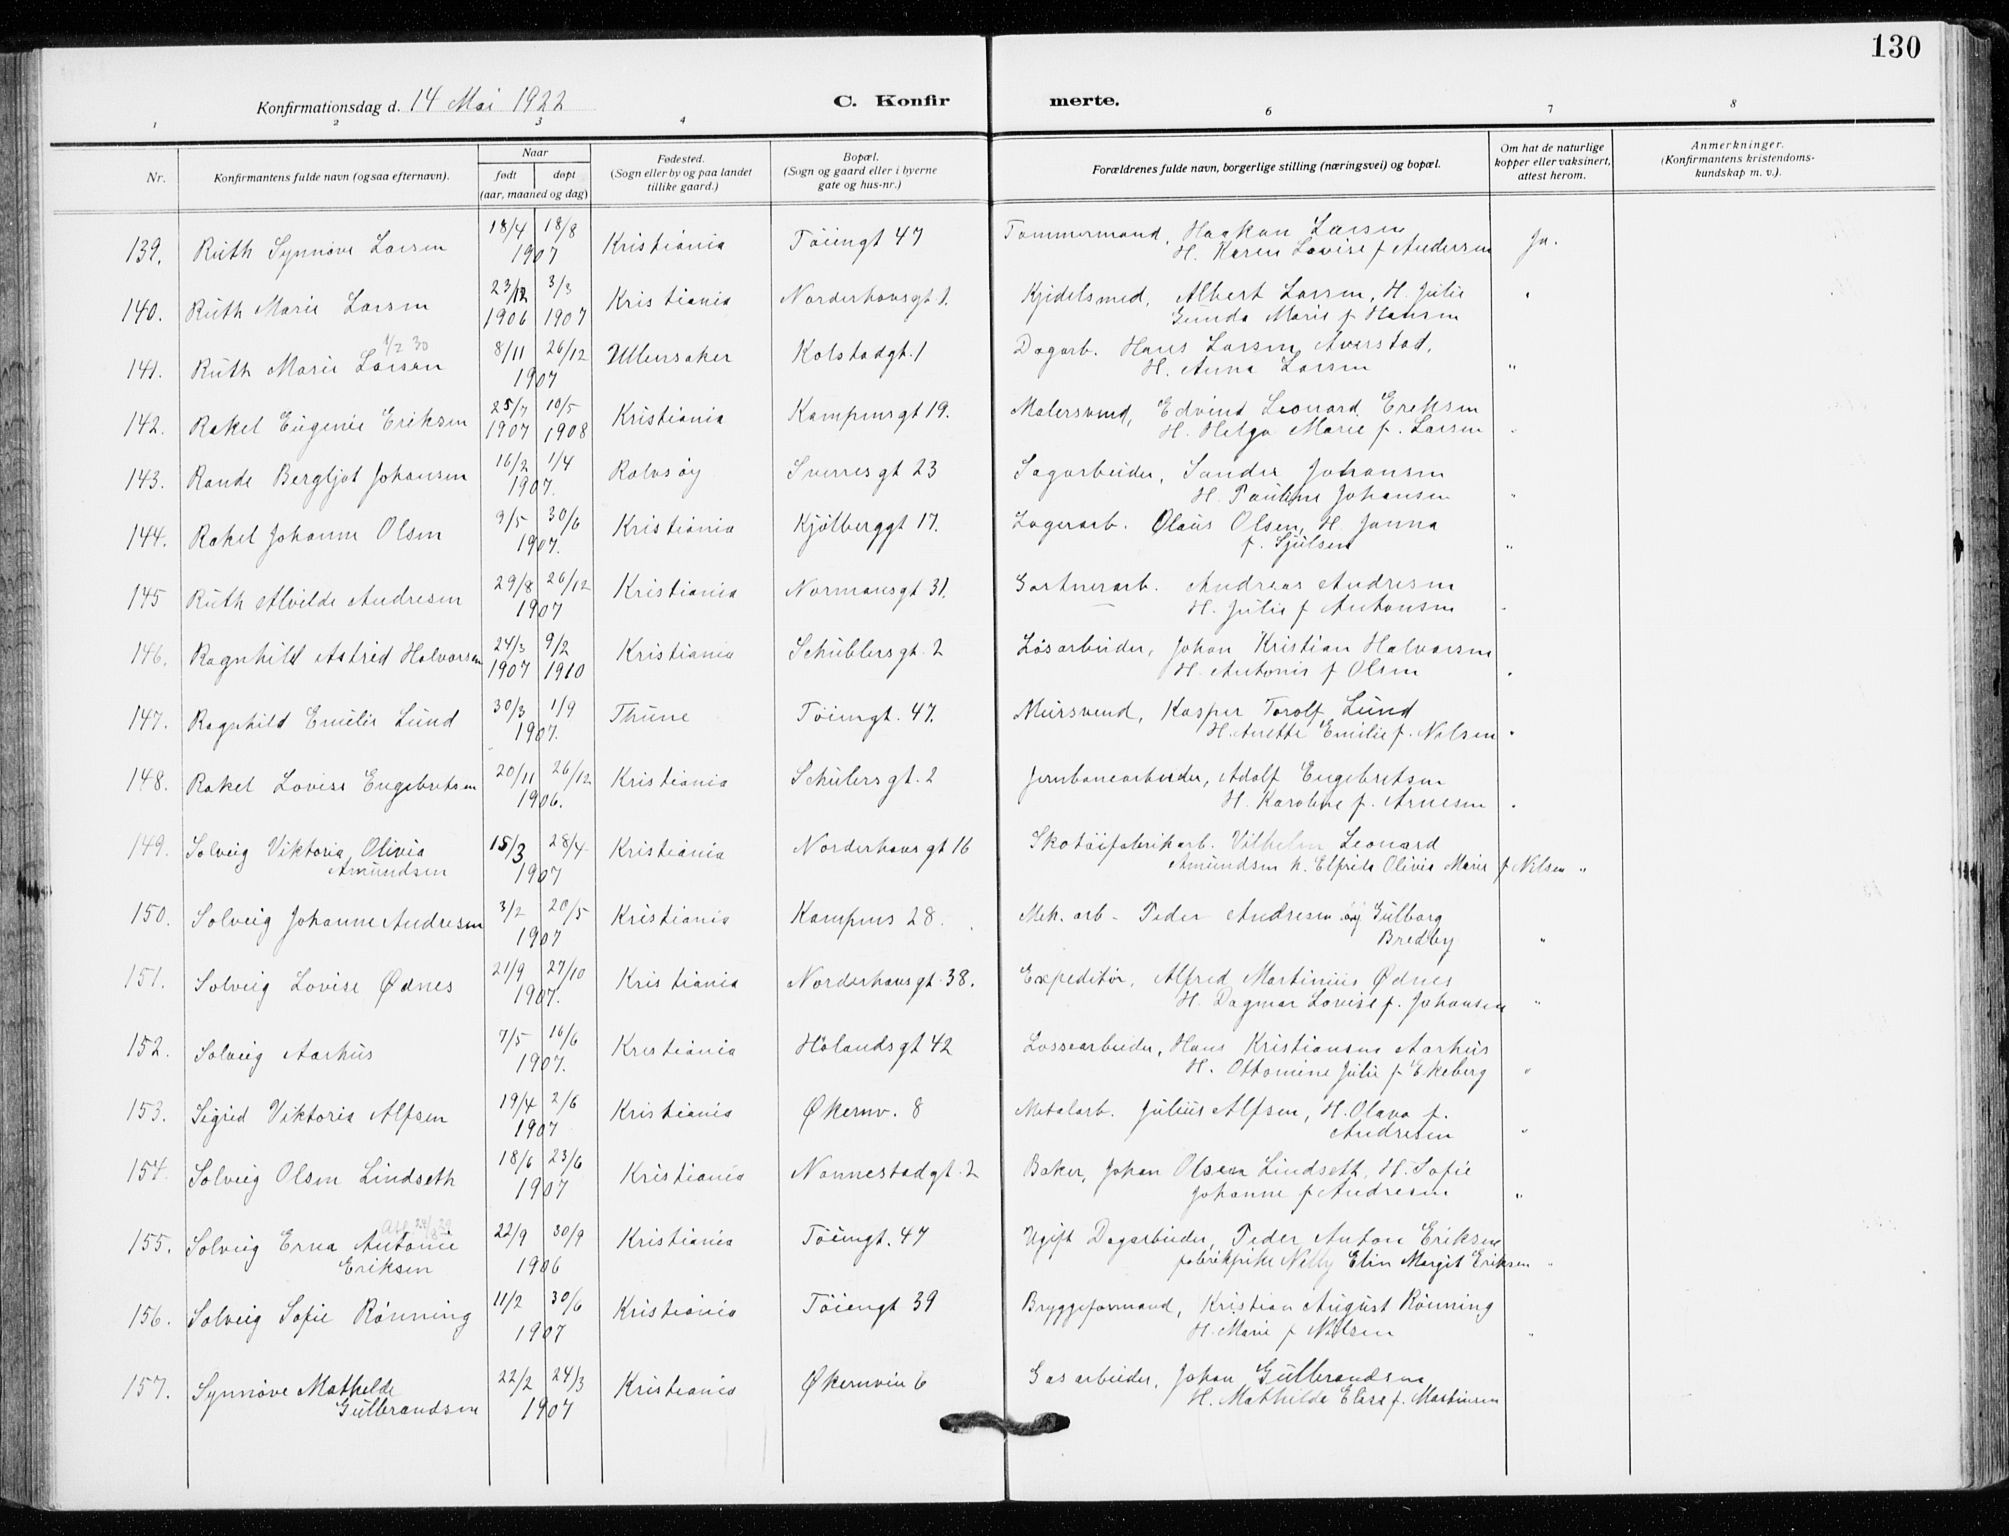 130
Konfirmationsdag d. 14 Mai 1922
C. Konfir merte.
1 2 3 4 6 7 8
Nr. Konfirmantens fulde navn (ogsaa efternavn). Naar født døpt (aar, maaned og dag) Fødested. (Sogn eller by og paa landet tillike gaard.) Bopæl. (Sogn og gaard eller i byerne gate og hus-nr.) Forældrenes fulde navn, borgerlige stilling (næringsvei) og bopæl. Om hat de naturlige kopper eller vaksinert, attest herom. Anmerkninger. (Konfirmantens kristendoms-kundskap m. v.).
139. Ruth Synnøve Larsen 18/4 18/8 1907 Kristiania Tøiengt 47 Tømmermand, Haakon Larsen
H. Karen Lovise f Andersen Ja.
140. Ruth Marie Larsen 23/12 1906 3/3 1907 Kristiania Norderhovsgt 1. Kjedelsmed, Albert Larsen, H. Julie
Gunda Marie f Hansen "
1/2 30
141. Ruth Marie Larsen 8/11 26/12 1907 Ullensaker Kolstadgt. 1 Dagarb. Hans Larsen Averstad,
H. Anna Larsen "
142. Rakel Eugenie Eriksen 25/7 1907 10/5 1908 Kristiania Kampensgt 19. Malersvend, Edvind Leonard Eriksen
H. Helga Marie f. Larsen "
143. Rande Bergljot Johansen 16/2 1/4 1907. Rolvsøy Sverresgt 23 Sagarbeider, Sander Johansen
H. Pauline Johansen "
144. Rakel Johanne Olsen 9/5 30/6 1907. Kristiania Kjølberggt 17. Lagerarb. Olaus Olsen, H. Janna
f. Sjulsen "
145 Ruth Alvilde Andresen 29/8 26/12 1907 Kristiania Normansgt 31. Gartnerarb. Andreas Andresen
H. Julie f Antonsen "
146. Ragnhild Astrid Halvorsen 24/3 1907 9/2 1910 Kristiania Schüblersgt. 2 Løsarbeider, Johan Kristian Halvorsen
H. Antonie f Olsen "
147. Ragnhild Emilie Lund 30/3 1/9 1907. Thune Tøiengt. 47. Mursvend, Kasper Torolf Lund
H. Anette Emilie f. Nilsen "
148. Rakel Lovise Engebretsen 20/11 26/12 1906. Kristiania Schülersgt. 2 Jernbanearbeider, Adolf Engebretsen
H. Karoline f. Arnesen "
149. Solveig Viktoria Olivia
Amundsen 15/3 28/4 1907 Kristiania Norderhovsgt 16 Skotøifabrikarb. Vilhelm Leonard
Amundsen h. Elfrida Olivia Marie f Nilsen "
150. Solveig Johanne Andresen 3/2 20/5 1907 Kristiania Kampens 28. Mek. arb - Peder Andresen og Gulborg
Bredby "
151. Solveig Lovise Ødnes 21/9 27/10 1907. Kristiania Norderhovsgt. 38. Expeditør, Alfred Martinius Ødnes
H. Dagmar Lovise f. Johansen "
152. Solveig Aarhus 7/5 16/6 1907. Kristiania Hølandsgt 42 Lossearbeider, Hans Kristiansen Aarhus
H. Ottomine Julie f Ekeberg "
153. Sigrid Viktoria Alfsen 19/4 2/6 1907 Kristiania Økernv. 8 Metalarb. Julius Alfsen, H. Olava f.
Andresen "
154. Solveig Olsen Lindseth 18/6 23/6 1907 Kristiania Nannestadgt. 2 Baker, Johan Olsen Lindseth, H. Sofie
Johanne f Andresen "
155. Solveig Erna Antonie
Eriksen 22/9 30/9 1906 Kristiania Tøiengt. 47 Ugift Dagarbeider, Peder Anton Eriksen
fabrikpike Nelly Elin Margit Eriksen "
156. Solveig Sofie Rønning 11/2 30/6 1907 Kristiania Tøiengt 39 Bryggeformand, Kristian August Rønning
H. Marie f Nilsen "
157. Synnøve Mathilde
Gulbrandsen 22/2 24/3 1907 Kristiania Økernvein 6 Gasarbeider, Johan Gulbrandsen
H. Mathilda Elise f. Martinsen